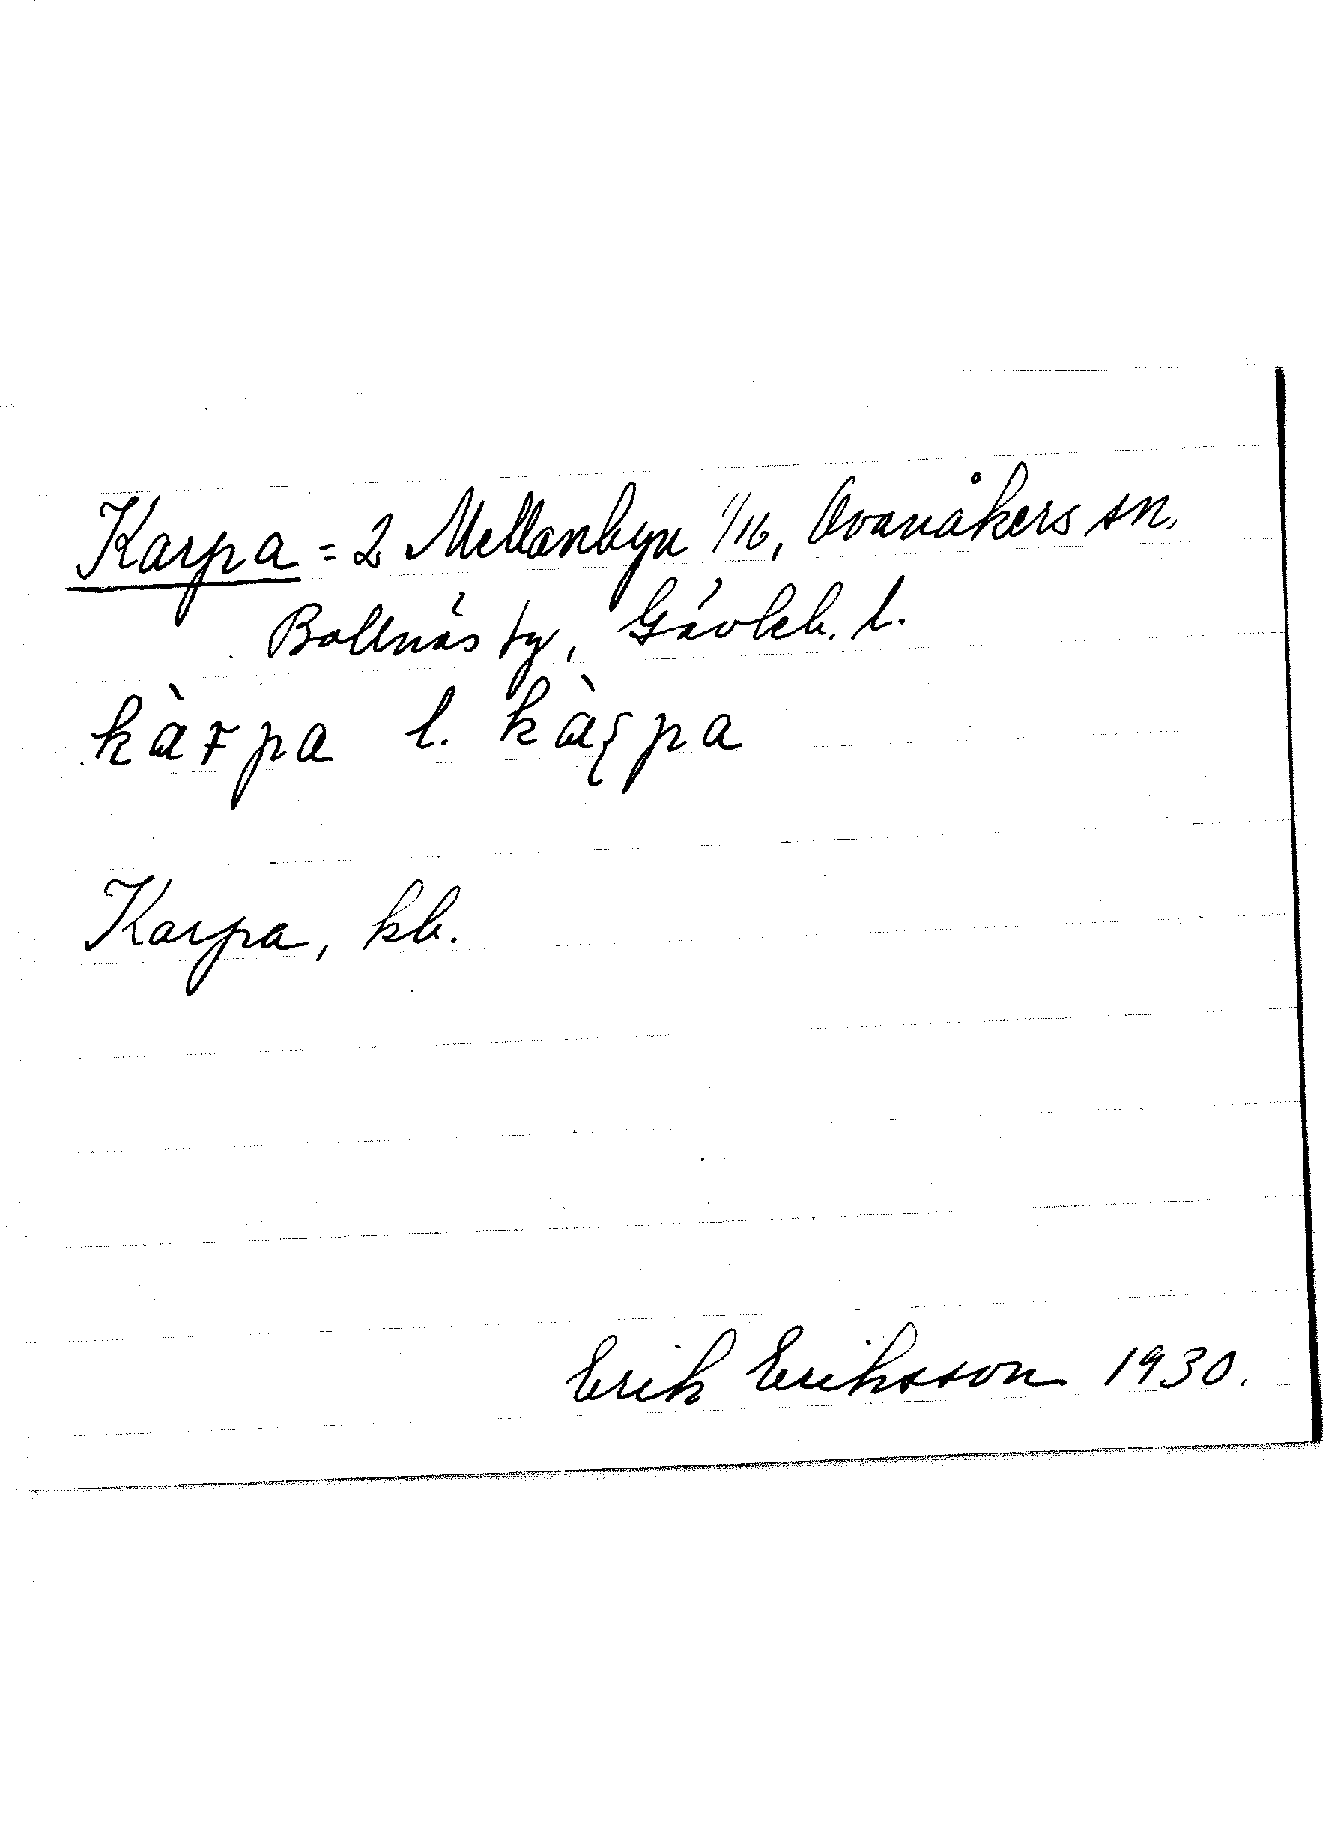 Karpa = 2 Mellanbyn 1/16, Ovanåkers sn,
Bollnäs ty, Gävleb. l.
kàrpa l. kàꞧpa
Karpa, kb.
Erik Eriksson 1930.